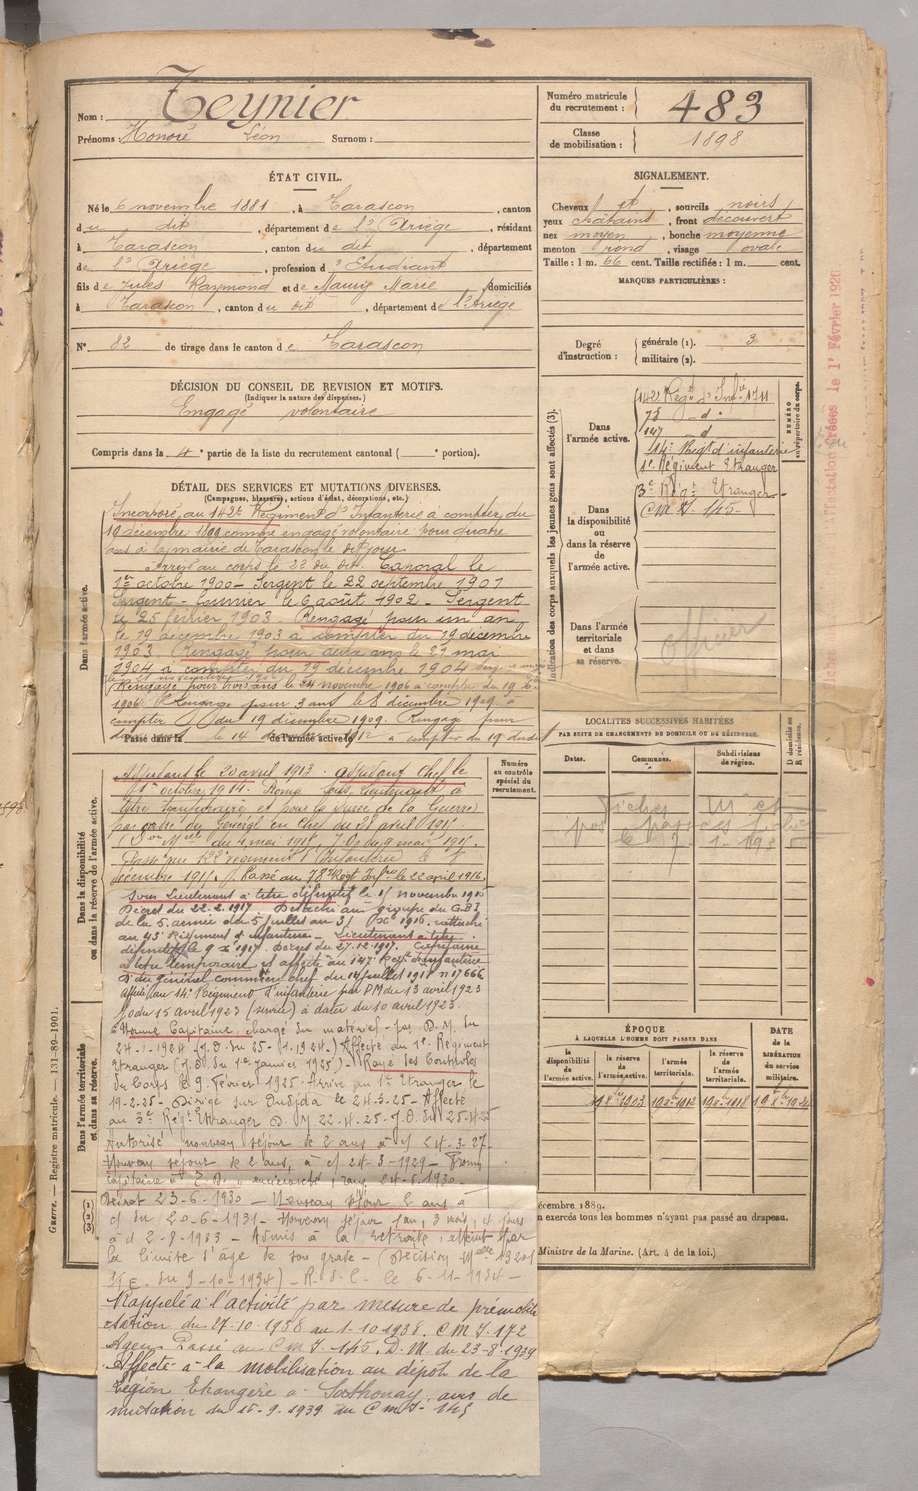 Nom : Teynier
Prénoms : Honoré Léon Surnom :
Numéro matricule du recrutement : 483
Classe de mobilisation : 1898
ÉTAT CIVIL.
Né le 6 novembre 1881, à Tarascon, canton
du dit, département de l'Ariège, résidant
à Tarascon, canton du dit, département
de l'Ariège, profession d'Etudiant
fils de Jules Raymond et de Maury Marie, domiciliés
à Tarascon, canton du dit, département de l'Ariège
N° 82 de tirage dans le canton de Tarascon
SIGNALEMENT.
Cheveux et, sourcils noirs
yeux châtains, front découvert
nez moyen, bouche moyenne
menton rond, visage ovale
Taille : 1 m. 66 cent. Taille rectifiée : 1 m. cent.
MARQUES PARTICULIÈRES :
Degré d'instruction : générale (1). 3
militaire (2).
DÉCISION DU CONSEIL DE REVISION ET MOTIFS.
(Indiquer la nature des dispenses.)
Engagé volontaire
Compris dans la 4e partie de la liste du recrutement cantonal ( portion).
Indication des corps auxquels les jeunes gens sont affectés (3).
NUMÉRO au répertoire du corps.
Dans l'armée active.
142e Régt d'Infie 1711
78 d°
147 d
14e Régt d'infanterie
1e Régiment Etranger
Dans la disponibilité ou dans la réserve de l'armée active.
3e Régt Etranger
C M I 145
Dans l'armée territoriale et dans sa réserve.
officier
DÉTAIL DES SERVICES ET MUTATIONS DIVERSES.
(Campagnes, blessures, actions d'éclat, décorations, etc.)
Dans l'armée active.
Incorporé au 142e Régiment d'Infanterie à compter du
19 décembre 1899 comme engagé volontaire pour quatre
ans à la mairie de Tarascon le dit jour
Arrivé au corps le 22 du dit. Caporal le
1er octobre 1900 - Sergent le 22 septembre 1901
Sergent - fourrier le 6 août 1902 - Sergent
le 25 février 1903 Rengagé pour un an
le 19 décembre 1903 à compter du 19 décembre
1903. Rengagé pour deux ans le 27 mai
1904 à compter du 19 décembre 1904
Rengagé pour trois ans le 24 novembre 1906 à compter du 19 Xbre
1906 Rengagé pour 3 ans le 8 décembre 1909 à
compter du 19 décembre 1909. Rengagé pour
le 14 1912 à compter du 19 dudit
Passé dans la de l'armée active le
Numéro au contrôle spécial du recrutement.
Dans la disponibilité ou dans la réserve de l'armée active.
Adjudant le 20 avril 1913. Adjudant Chef le
1er octobre 1914. Nommé Sous-Lieutenant à
titre temporaire et pour la durée de la Guerre
par ordre du Général en Chef du 28 avril 1915
Passé au régiment d'Infanterie le
décembre 1915. Passé au 78e Régt Infie le 22 avril 1916.
Sous Lieutenant à titre définitif le 11 novembre 1916
Décret du 22.2.1917 Détaché au groupe du G.B.I
de la 5e armée du 5 Juillet au 31 Xe 1916.
au 43e Régiment d'infanterie - Lieutenant à titre
définitif le 9 Xe 1917 Décret du 27.12.1917 Capitaine
à titre temporaire et affecté au 147e Régt d'Infanterie
D. du général commt en chef du 14 juillet 1918 n° 17666
affecté au 14e Régiment d'infanterie par DM du 13 avril 1923
JO du 15 avril 1923 (service) à dater du 10 avril 1923
Dans l'armée territoriale et dans sa réserve.
Nommé Capitaine, chargé du matériel - par D.M. du
24-1-1924 (J.O. du 25-1-1924) Affecté du 1er Régiment
Etranger (J.O. du 1er janvier 1925) - Rayé des Contrôles
du Corps le 9 Février 1925 - Arrivé au 1er Etranger le
19-2-25 - Dirigé sur Oudjda le 24-3-25 - Affecté
au 3e Régt Etranger D.M 22-4-25 - J.O. du 25-4-25
Autorisé nouveau séjour de 2 ans à c/ 24-3-27
Nouveau séjour de 2 ans, à c/ 24-3-1929 - Promu
capitaine à T.D. à ancienneté, rang 24-6-1930 -
Décret 23-6-1930 - Nouveau séjour 2 ans à
c/ du 20-6-1931 - Nouveau séjour 1 an, 3 mois, 4 jours
à c/ 2-8-1933 - Admis à la retraite, atteint par
la limite d'âge de son grade - (Décision Mlle 13201
I/E. du 9-10-1934) - R.d.C. le 6-11-1934 -
Rappelé à l'activité par mesure de prémobili
sation du 27-10-1938 au 1-10-1938. C M I. 172
Agen. Passé au C M I. 145. D.M. du 23-8-1939
Affecté à la mobilisation au dépôt de la
Légion Etrangère à Sathonay, avis de
mutation du 15-9-1939 du C M I - 145
LOCALITÉS SUCCESSIVES HABITÉES
PAR SUITE DE CHANGEMENTS DE DOMICILE OU DE RÉSIDENCE.
D domicile ou R résidence.
Dates. Communes. Subdivisions de région.
Fiches M et
le 7-1-1925
ÉPOQUE
À LAQUELLE L'HOMME DOIT PASSER DANS
DATE de la LIBÉRATION DU SERVICE militaire.
la disponibilité de l'armée active. la réserve de l'armée active. l'armée territoriale. la réserve de l'armée territoriale.
décembre 1889.
n exercés tous les hommes n'ayant pas passé au drapeau.
Ministre de la Marine. (Art. 4 de la loi.)
Guerre. — Registre matricule. — 131-89-1901.
le 1er Février 1920